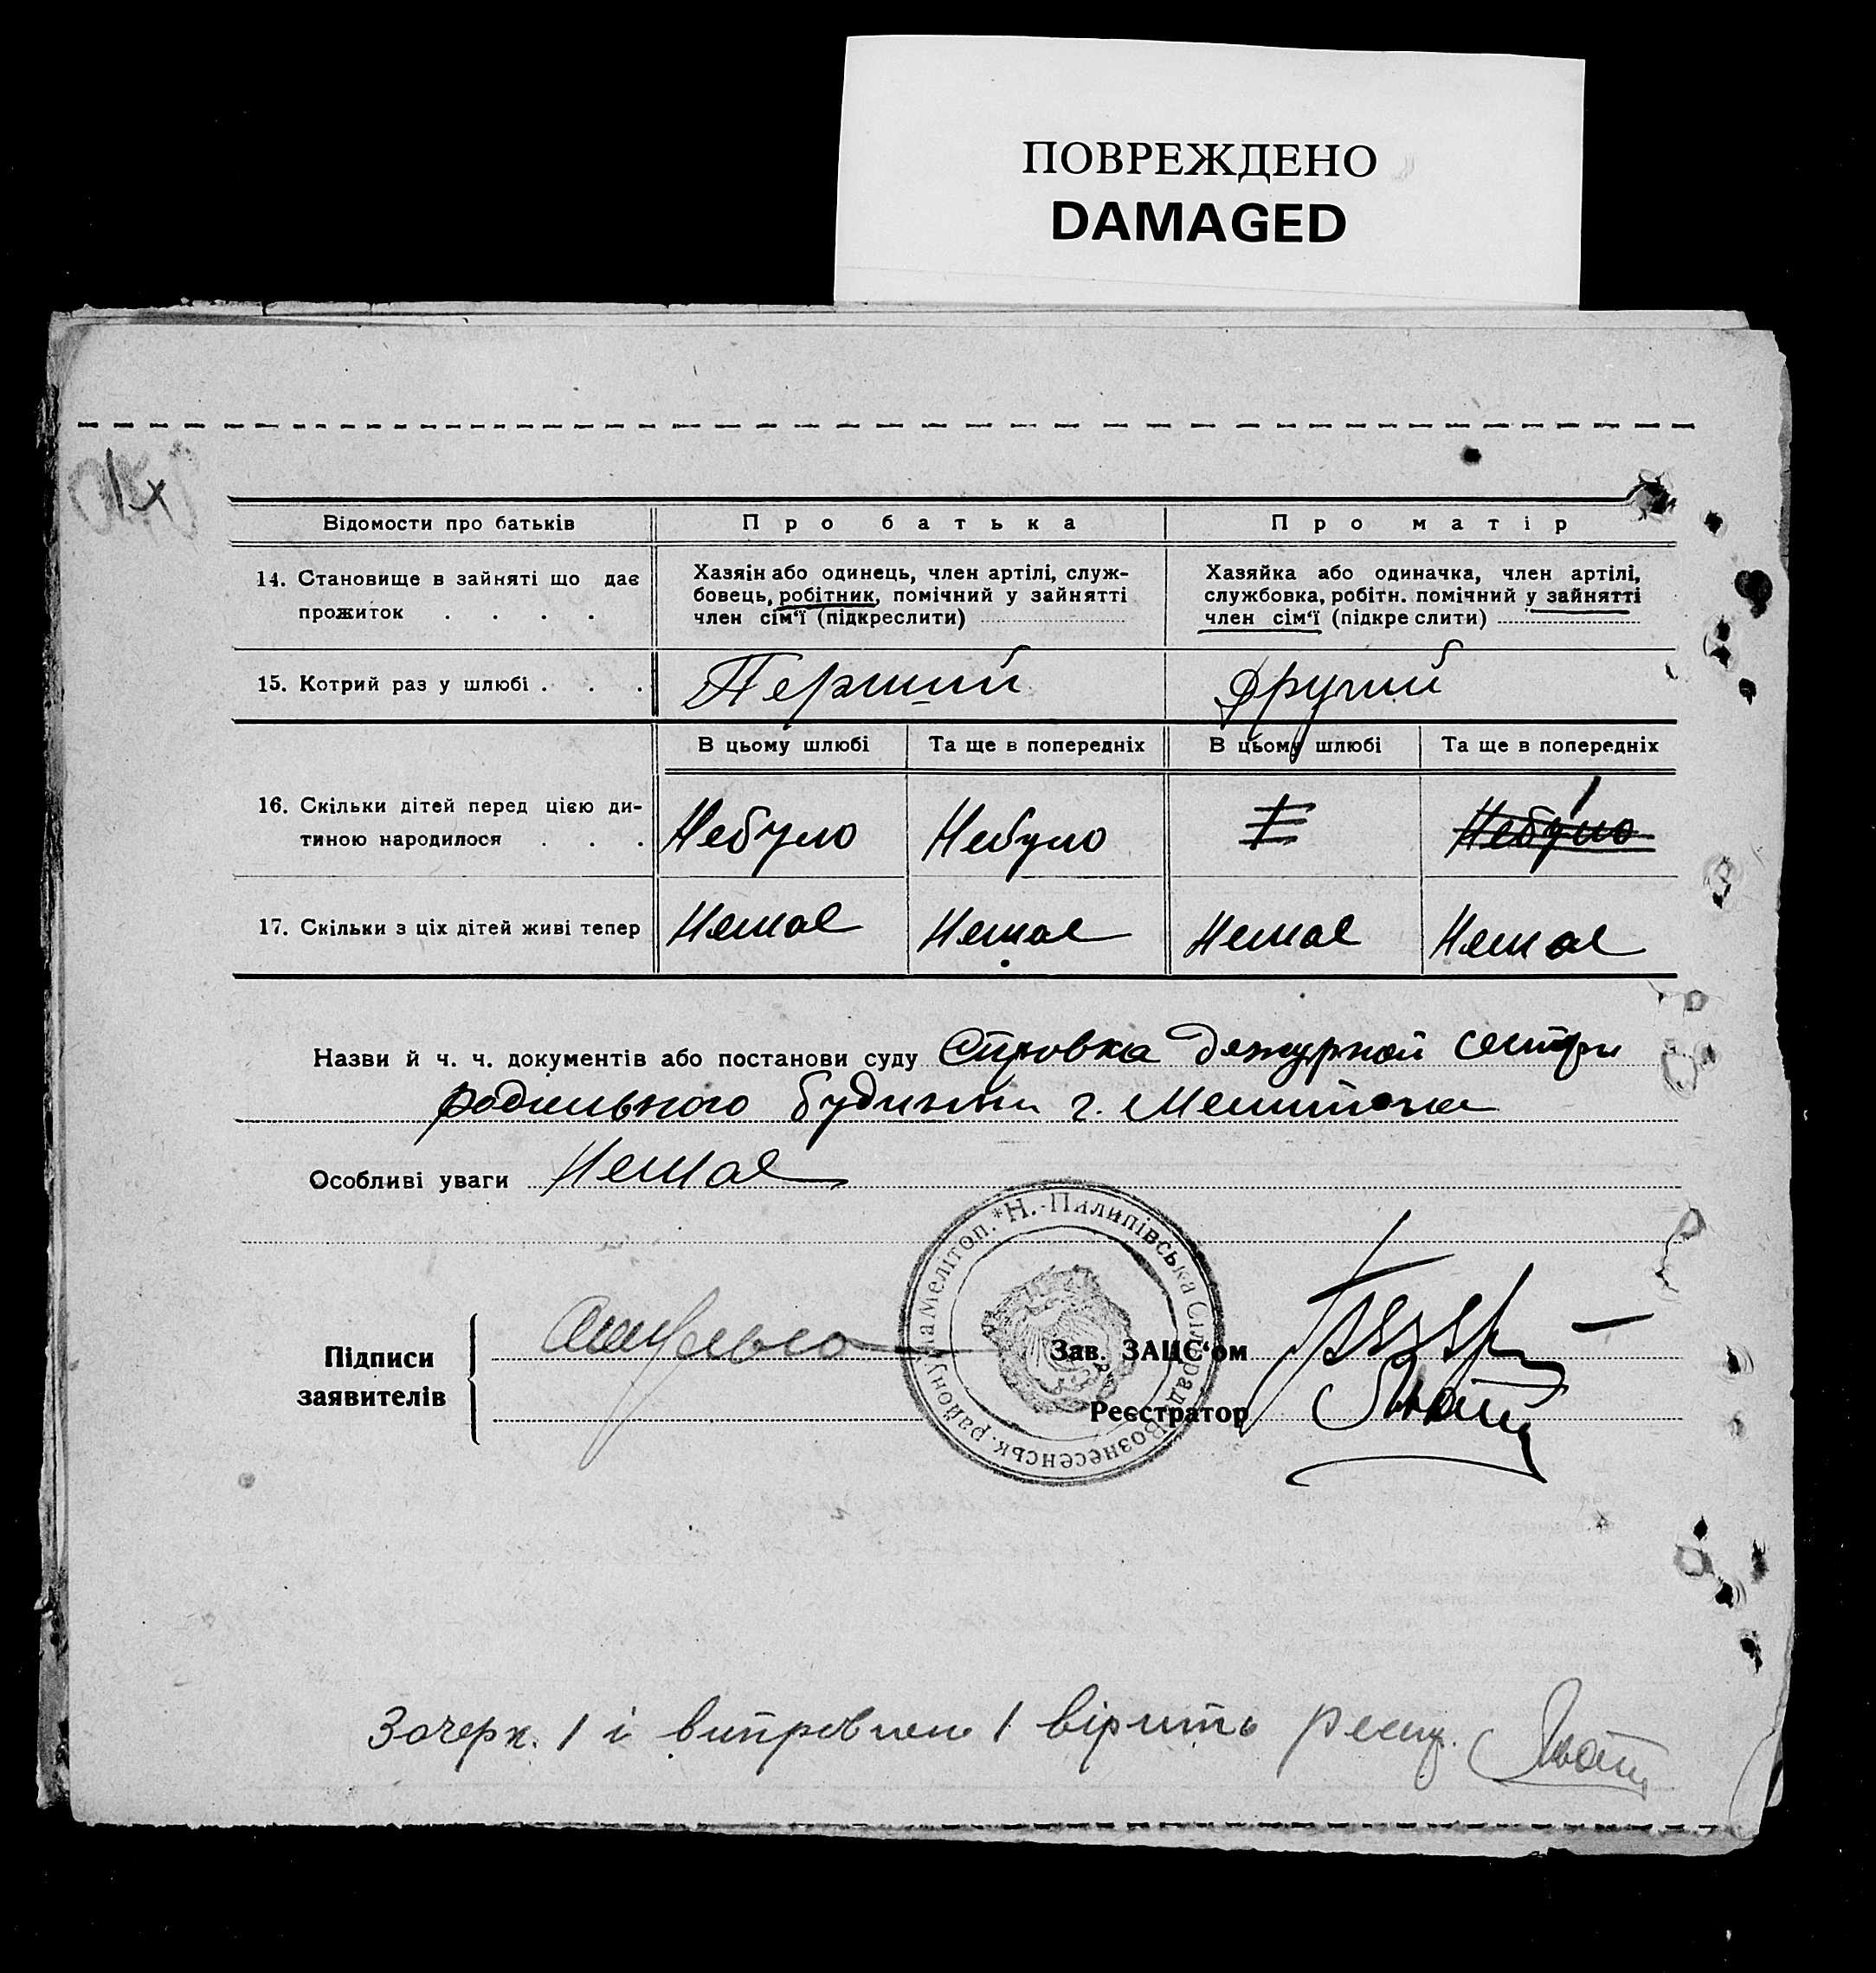 ПОВРЕЖДЕНО
DAMAGED
Відомости про батьків
Про батька
Про матір
14. Становище в зайняті що дає
прожиток . . . .
Хазяін або одинець, член артілі, служ-
бовець, робітник, помічний у зайнятті
член сім‘ї (підкреслити)
Хазяйка або одиначка, член артілі,
службовка, робітн. помічний у зайнятті
член сім‘ї (підкреслити)
15. Котрий раз у шлюбі . . .
Перший
Другий
В цьому шлюбі
Та ще в попередніх
В цьому шлюбі
Та ще в попередніх
16. Скільки дітей перед цією ди-
тиною народилося . . .
Небуло
Небуло
1
Небуло
17. Скільки з ціх дітей живі тепер
Немає
Немає
Немає
Немає
Назви й ч. ч. документів або постанови суду Справка дежурной сестри
родильного будинка г. Мелитополя
Особливі уваги Немає
Н.-Пилипівська Сільрада Вознесенськ. району на Мелітоп.
Підписи
заявителів
Зав. ЗАЦС‘ом
Реєстратор
Зачерк. 1 і виправлен 1 вірить реєстр.